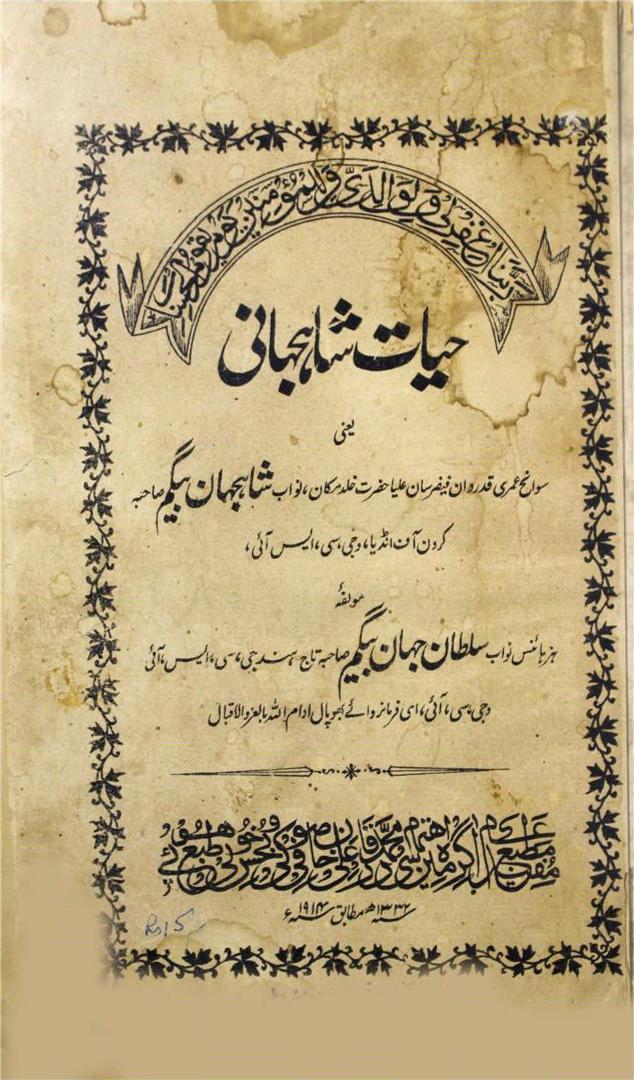 ربنا اغفرلی ولوالدی وللمؤمنین یوم یقوم الحساب
حیات شاہجہانی
یعنی
سوانح عمری قدردان فیضرسان علیا حضرت خلد مکان، نواب شاہجہان بیگم صاحبہ
کرون آف انڈیا، وجی، سی، ایس آئی،
مولفۂ
ہز ہائنس نواب سلطان جہان بیگم صاحبہ تاج ہند جی، سی، ایس، آئی
وجی، سی، آئی، ای فرمانروائے بھوپال ادام اللہ بالعز والاقبال
مطبع مفید عام آگرہ میں باہتمام محمد قادر علی خان صوفی
۱۳۳۲ھ مطابق ۱۹۱۴ء
Rs 15